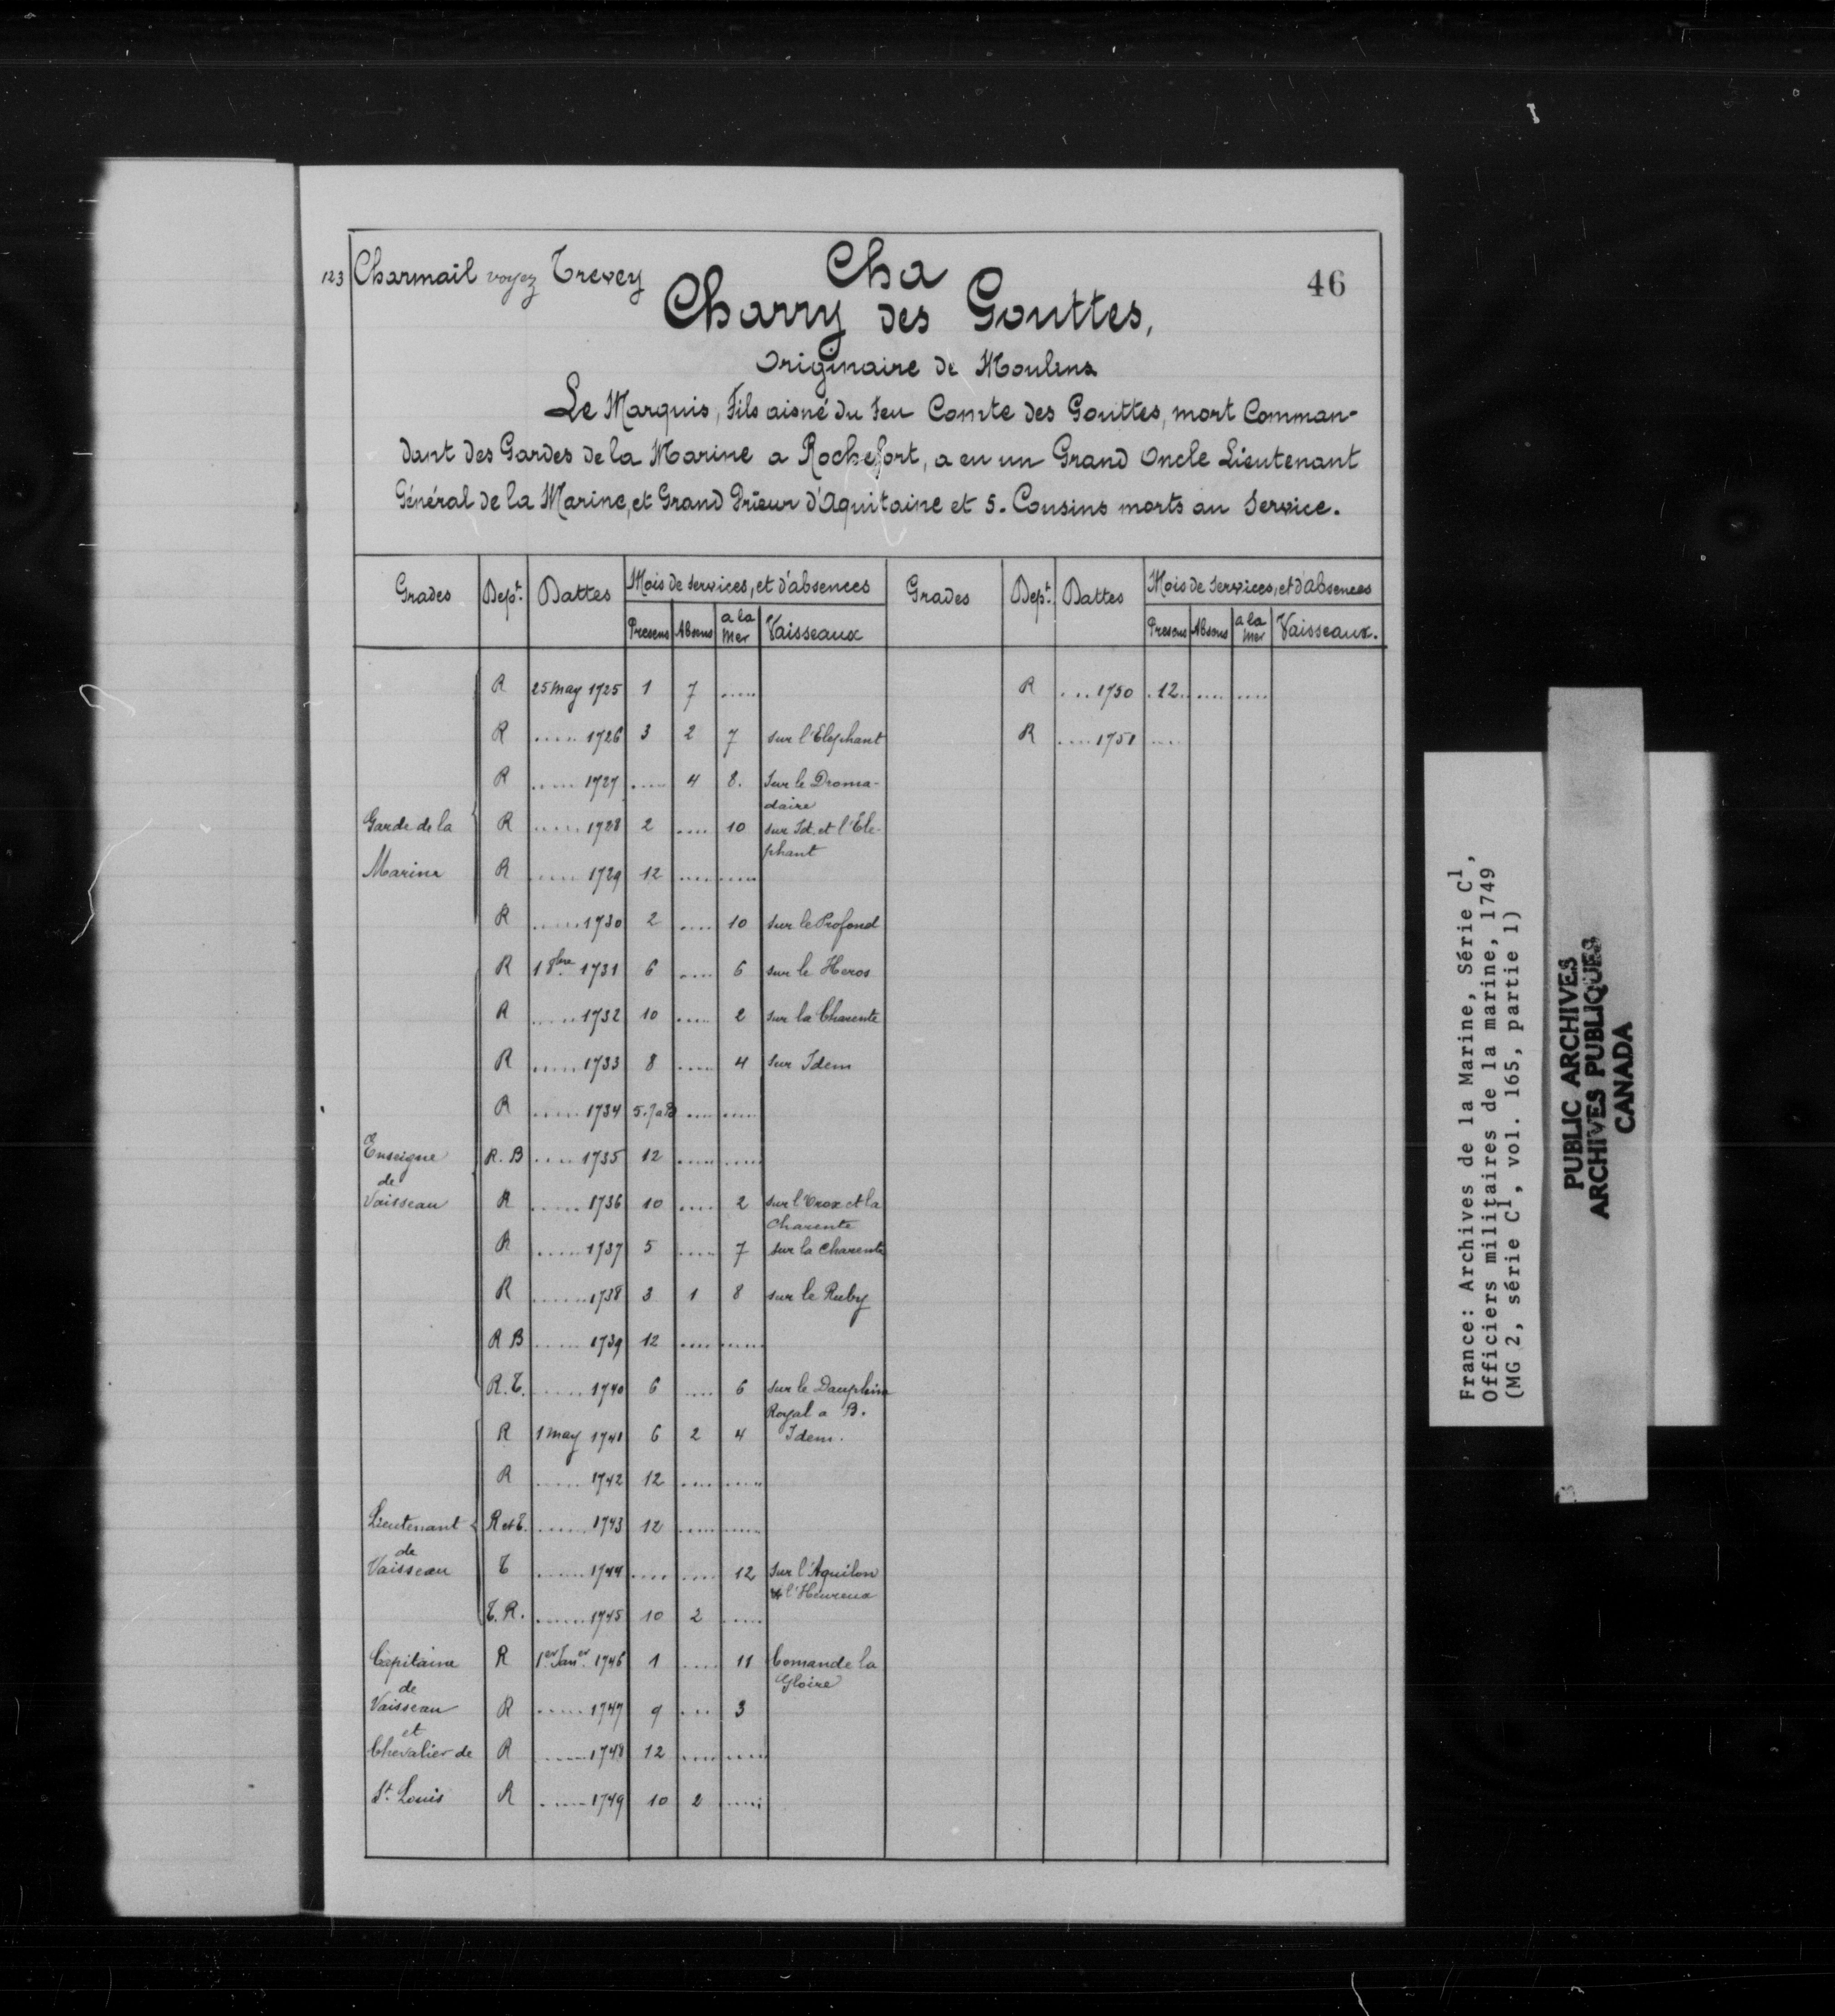 123 Charmail voyez Trevey
Cha
46
Charry des Gouttes,
Originaire de Moulins
Le Marquis, Fils aisné du feu Comte des Gouttes, mort Comman-
dant des Gardes de la Marine a Rochefort, a eu un Grand Oncle Lieutenant
Général de la Marine, et Grand Prieur d'Aquitaine et 5. Cousins morts au Service.
Grades Dept. Dattes Mois de Services, et d'absences Grades Dept. Dattes Mois de Services, et d'absences
Presens Absens a la Mer Vaisseaux Presens Absens a la Mer Vaisseaux.
R 25 May 1725 1 7 ..... R ... 1750 .12. .... ....
R ..... 1726 3 2 7 sur l'Elephant R .... 1751 ....
R ..... 1727 ..... 4 8. Sur le Droma-
daire
Garde de la R ..... 1728 2 .... 10 sur Id. et l'Ele-
phant
Marine R ..... 1729 12 .... .....
R ..... 1730 2 .... 10 sur le Profond
R 1 8bre 1731 6 .... 6 sur le Heros
R ..... 1732 10 ..... 2 sur la Charente
R ..... 1733 8 ..... 4 sur Idem
R ..... 1734 5. 7 a B .... .....
Enseigne R. B .... 1735 12 ..... .....
de
Vaisseau R ..... 1736 10 .... 2 sur l' et la
Charente
R ..... 1737 5 ..... 7 sur la Charente
R ...... 1738 3 1 8 sur le Ruby
R B ..... 1739 12 .... .....
R. T. ..... 1740 6 .... 6 sur le Dauphin
Royal a B.
R 1 May 1741 6 2 4 Idem.
R ..... 1742 12 .... .....
Lieutenant R et T. ..... 1743 12 ..... .....
de
Vaisseau T ...... 1744 .... .... 12 Sur l'Aquilon
et l'Heureux
T. R. ...... 1745 10 2 .....
Capitaine R 1er Janer. 1746 1 .... 11 Comande la
Gloire
de
Vaisseau R ..... 1747 9 ... 3
et
Chevalier de R ..... 1748 12 .... .....
St. Louis R ..... 1749 10 2 .....
France: Archives de la Marine, Série C1,
Officiers militaires de la marine, 1749
(MG 2, série C1, vol. 165, partie 1)
PUBLIC ARCHIVES
ARCHIVES PUBLIQUES
CANADA